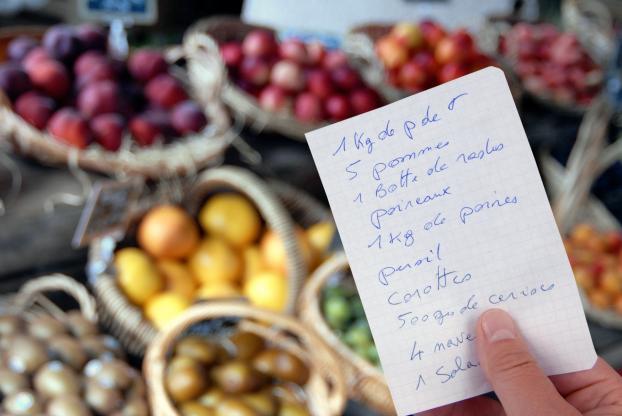 1 Kg de p de t
5 pommes
1 Botte de radis
poireaux
1 Kg de poires
persil
carottes
500gr de cerises
4 nave
1 Sala